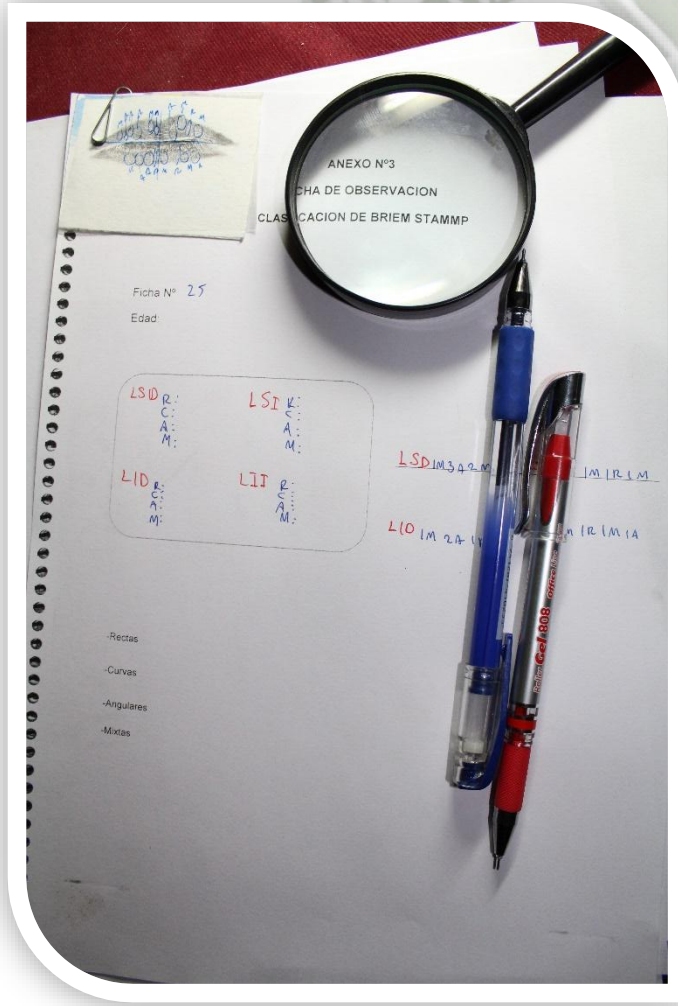 ANEXO Nº3
CHA DE OBSERVACION
CLAS CACION DE BRIEM STAMMP
Ficha Nº 25
Edad:
LSD R:
C:
A:
M:
LSI R:
C:
A:
M:
LID R:
C:
A:
M:
LII R:
C:
A:
M:
LSD 1M3A2M 1M1R1M
LID 1M 2A 1R1M1A
-Rectas
-Curvas
-Angulares
-Mixtas
Roller Gel 808 OfficeMax